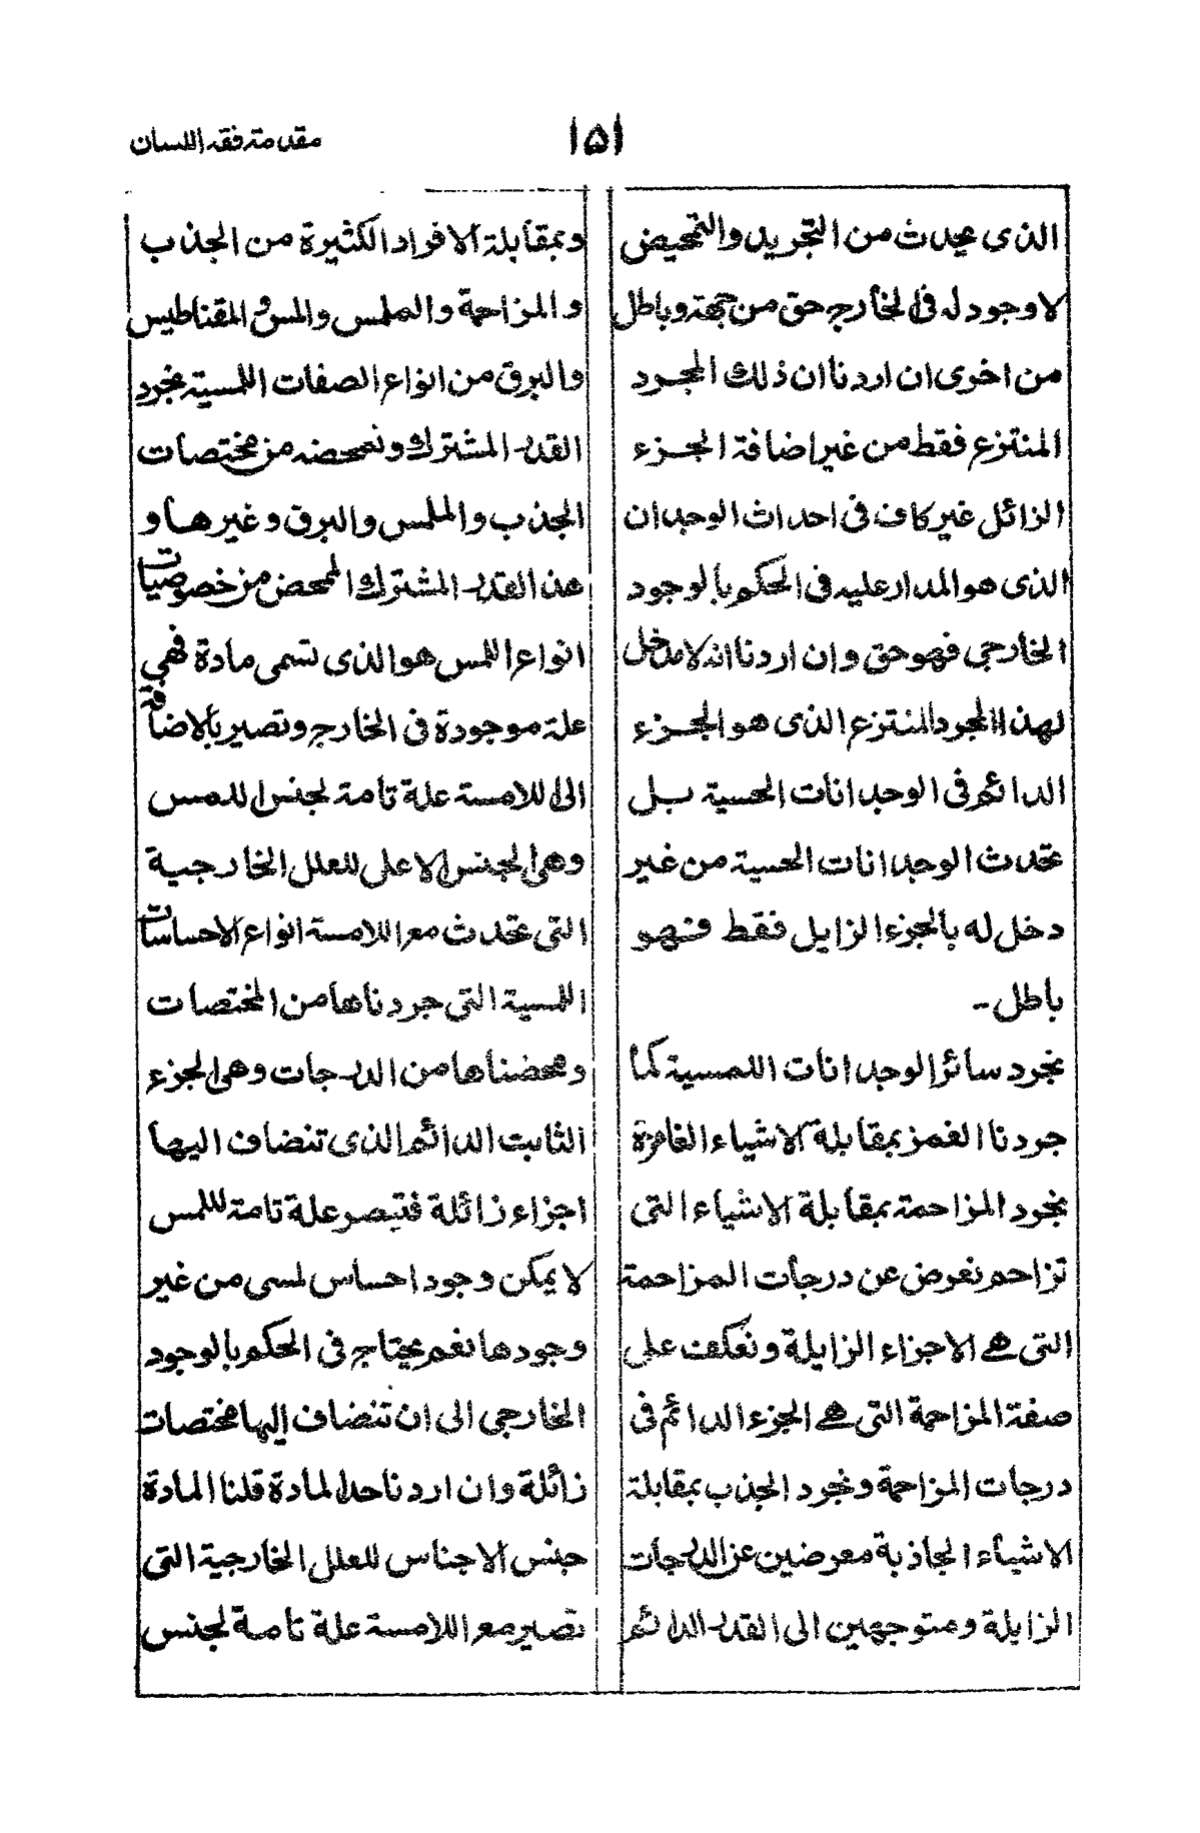 مقدمة فقه اللسان
١٥١
الذى يحدث من التجريد والتمحيض
لا وجود له فى الخارج حق من جهة وباطل
من اخرى ان اردنا ان ذلك المجرد
المنتزع فقط من غير اضافة الجزء
الزائل غير كاف فى احداث الوجدان
الذى هو المدار عليه فى الحكم بالوجود
الخارجى فهو حق وان اردنا انه لا مدخل
لهذا المجرد المنتزع الذى هو الجزء
الدائم فى الوجدانات الحسية بل
تحدث الوجدانات الحسية من غير
دخل له بالجزء الزايل فقط فهو
باطل -
نجرد سائر الوجدانات اللمسية كما
جردنا الغمز بمقابلة الاشياء الغامزة
نجرد المزاحمة بمقابلة الاشياء التى
تزاحم نعرض عن درجات المزاحمة
التى هى الاجزاء الزايلة ونعكف على
صفة المزاحمة التى هى الجزء الدائم فى
درجات المزاحمة ونجرد الجذب بمقابلة
الاشياء الجاذبة معرضين عن الدرجات
الزايلة ومتوجهين الى القدر الدائم
وبمقابلة الافراد الكثيرة من الجذب
والمزاحمة والملمس والمس والمقناطيس
والبرق من انواع الصفات اللمسية نجرد
القدر المشترك ونمحضه من مختصات
الجذب والملمس والبرق وغيرها و
هذا القدر المشترك الممحض من خصوصيات
انواع اللمس هو الذى تسمى مادة فهى
علة موجودة فى الخارج وتصير بالاضافة
الى اللامسة علة تامة لجنس اللمس
وهى الجنس الاعلى للعلل الخارجية
التى تحدث مع اللامسة انواع الاحساسات
اللمسية التى جردناها من المختصات
ومحضناها من الدرجات وهى الجزء
الثابت الدائم الذى تنضاف اليها
اجزاء زائلة فتصير علة تامة لللمس
لا يمكن وجود احساس لمسى من غير
وجودها نعم يحتاج فى الحكم بالوجود
الخارجى الى ان تنضاف إليها مختصات
زائلة وان اردنا حد المادة قلنا المادة
جنس الاجناس للعلل الخارجية التى
تصير مع اللامسة علة تامة لجنس